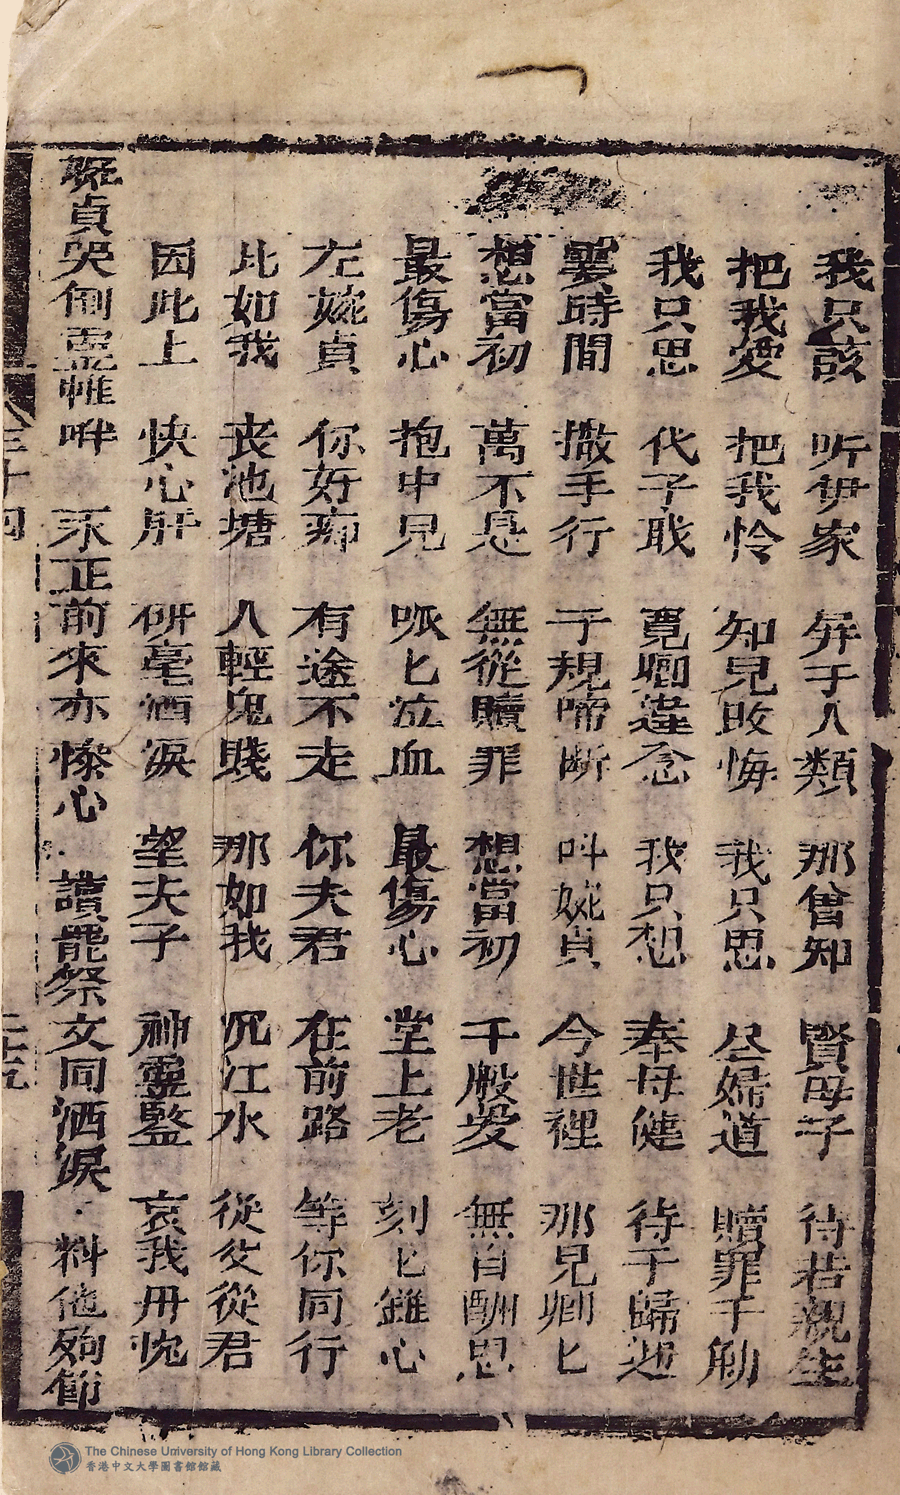 我只該 听伊家 屏于人類 那曾知 賢母子 待若親生
把我愛 把我怜 知見改悔 我只思 公婦道 贖罪千觔
我只思 代子耽 覔卿違念 我只想 奉母健 待于歸逝
霎時間 撒手行 子規啼断 呌婉貞 今世裡 那見卿匕
想當初 萬不是 無從贖罪 想當初 千般爱 無自酬恩
最傷心 抱中兒 呱匕泣血 最傷心 堂上老 刻匕錐心
左婉貞 你好痴 有途不走 你夫君 在前路 等你同行
比如我 丧池塘 人輕鬼賤 那如我 沉江水 從父從君
因此上 快心肝 研毫洒淚 望夫子 神靈監 哀我冊忱
婉貞哭倒靈帷畔 永正前來亦慘心 讀罷祭文同洒淚 料他殉節
三十四
二十五
The Chinese University of Hong Kong Library Collection
香港中文大學圖書館館藏